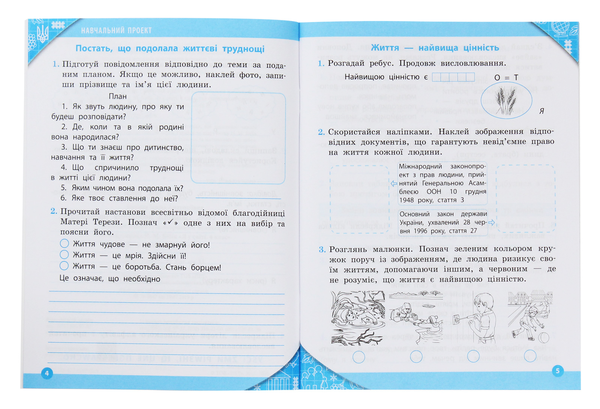 НАВЧАЛЬНИЙ ПРОЕКТ
Постать, що подолала життєві труднощі
1. Підготуй повідомлення відповідно до теми за пода-
ним планом. Якщо це можливо, наклей фото, запи-
ши прізвище та ім'я цієї людини.
План
1. Як звуть людину, про яку ти
будеш розповідати?
2. Де, коли та в якій родині
вона народилася?
3. Що ти знаєш про дитинство,
навчання та її життя?
4. Що спричинило труднощі
в житті цієї людини?
5. Яким чином вона подолала їх?
6. Яке твоє ставлення до неї?
2. Прочитай настанови всесвітньо відомої благодійниці
Матері Терези. Познач «✓» одне з них на вибір та
поясни його.
Життя чудове — не змарнуй його!
Життя — це мрія. Здійсни її!
Життя — це боротьба. Стань борцем!
Це означає, що необхідно
4
Життя — найвища цінність
1. Розгадай ребус. Продовж висловлювання.
Найвищою цінністю є
О = Т
Я
2. Скористайся наліпками. Наклей зображення відпо-
відних документів, що гарантують невід'ємне право
на життя кожної людини.
Міжнародний законопро-
ект з прав людини, прий-
нятий Генеральною Асам-
блеєю ООН 10 грудня
1948 року, стаття 3
Основний закон держави
України, ухвалений 28 чер-
вня 1996 року, стаття 27
3. Розглянь малюнки. Познач зеленим кольором кру-
жок поруч із зображенням, де людина ризикує сво-
їм життям, допомагаючи іншим, а червоним — де
не розуміє, що життя є найвищою цінністю.
5